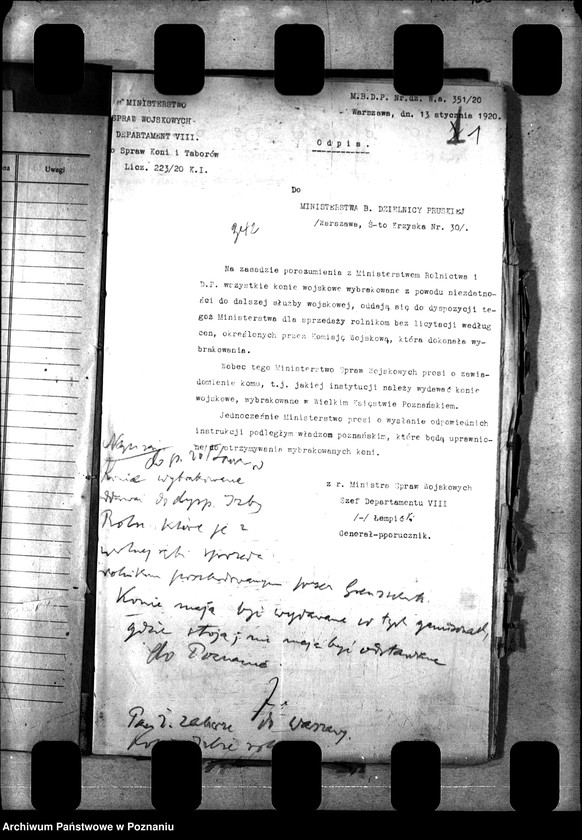 Uwagi
MINISTERSTWO
SPRAW WOJSKOWYCH
DEPARTAMENT VIII.
Spraw Koni i Taborów
Licz. 223/20 K.I.
M.B.D.P. Nr.dz. W.a. 351/20
Warszawa, dn. 13 stycznia 1920.
1
Odpis.
Do
MINISTERSTWA B. DZIELNICY PRUSKIEJ
/Warszawa, Ś-to Krzyska Nr. 30/.
Na zasadzie porozumienia z Ministerstwem Rolnictwa i
D.P. wszystkie konie wojskowe wybrakowane z powodu niezdatno-
ści do dalszej służby wojskowej, oddają się do dyspozycji te-
goż Ministerstwa dla sprzedaży rolnikom bez licytacji według
cen, określonych przez Komisję Wojskową, która dokonała wy-
brakowania.
Wobec tego Ministerstwo Spraw Wojskowych prosi o zawia-
domienie komu, t.j. jakiej instytucji należy wydawać konie
wojskowe, wybrakowane w Wielkim Księstwie Poznańskiem.
Jednocześnie Ministerstwo prosi o wysłanie odpowiednich
instrukcji podległym władzom poznańskim, które będą uprawnio-
ne do otrzymywania wybrakowanych koni.
z r. Ministra Spraw Wojskowych
Szef Departamentu VIII
/-/ Łempicki
Generał-pporucznik.
konie wybrakowane
do dysp. Izby
Roln. które je z
wolnej ręki
rolnikom poszkodowanym przez Grenzschutz.
Konie mają być wydawane w tych garnizonach,
gdzie stoją, nie mają być odstawiane
do Poznania.
do Warszawy.
Archiwum Państwowe w Poznaniu